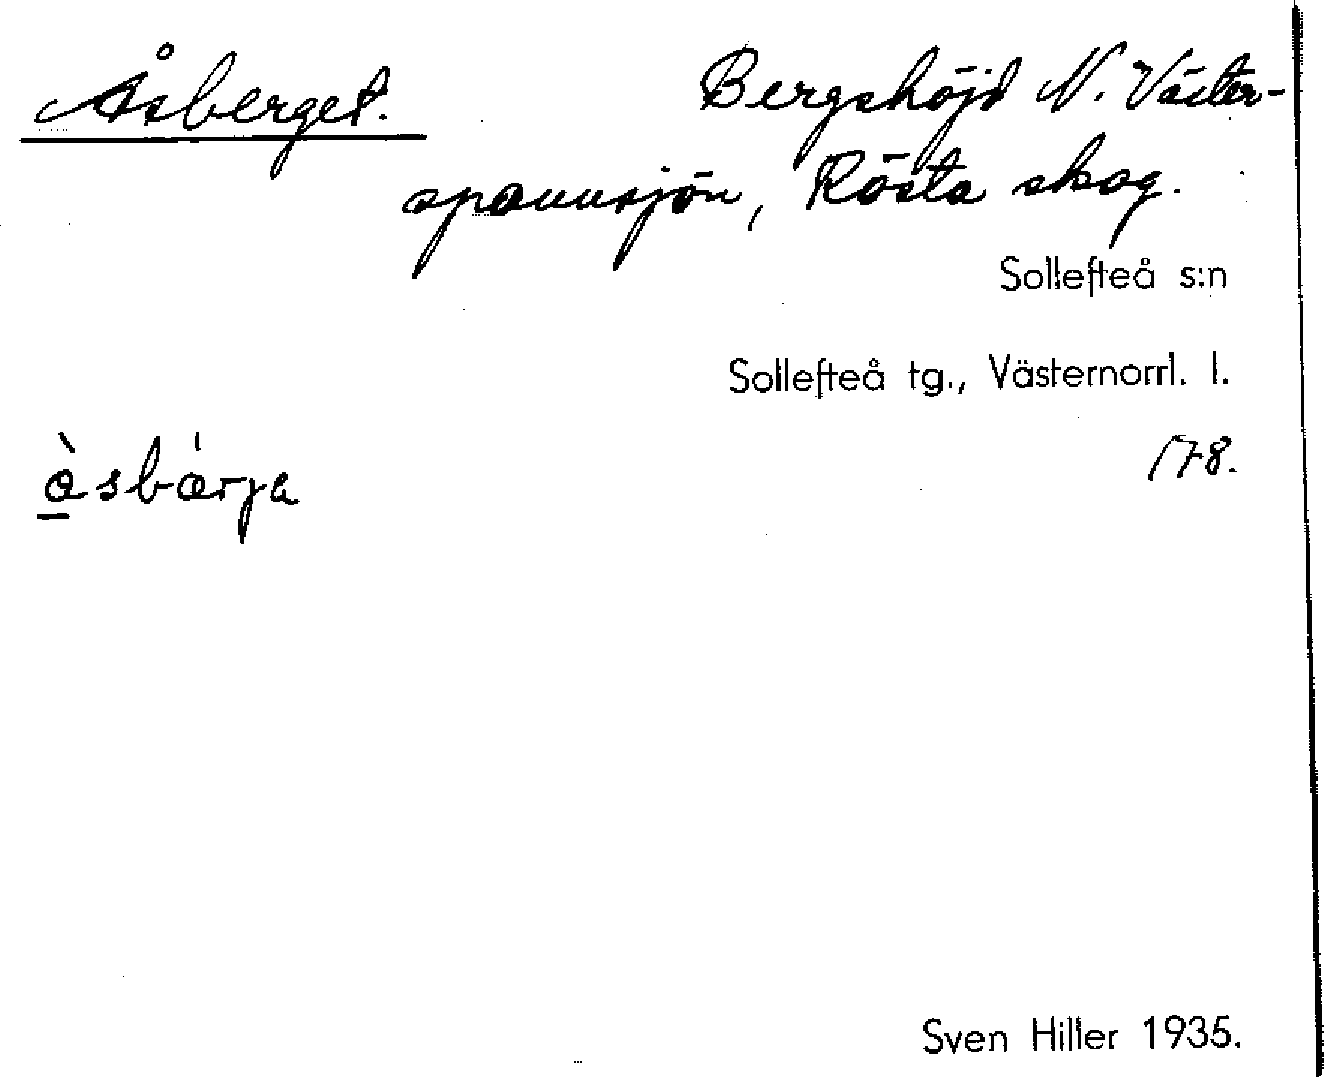 Åsberget. Bergshöjd N. Väster-
spannsjön, Rösta skog.
Sollefteå s:n
Sollefteå tg., Västernorrl. l.
178.
àsbárja
Sven Hiller 1935.